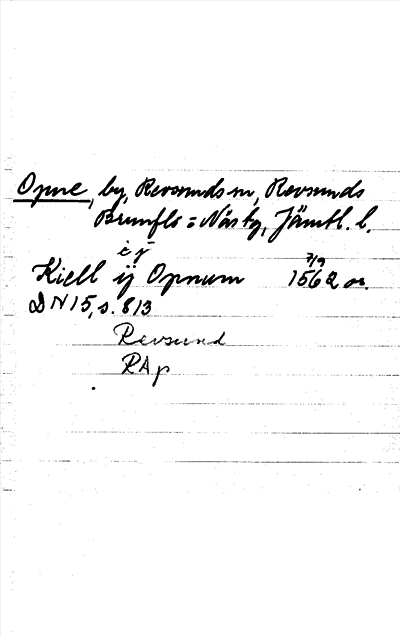 Opne, by, Revsunds sn, Revsunds
Brunflo = Näs tg, Jämtl. l.
ij
Kiell ij Opnum 7/9 1562 or.
DN 15, s. 813
Revsund
RAp